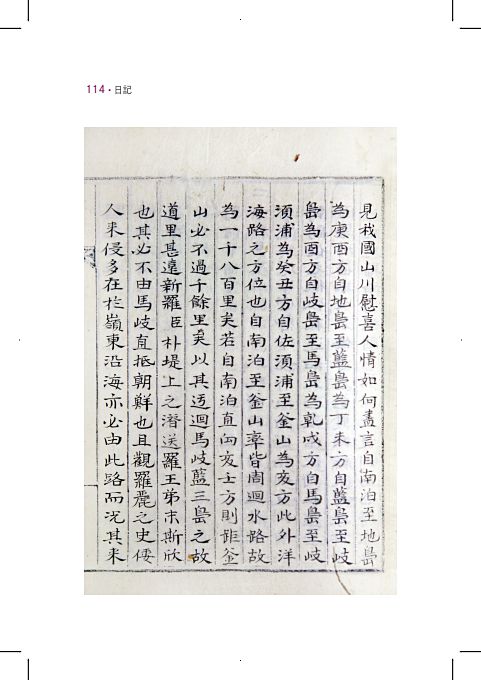 114 · 日記
見我國山川慰喜人情如何盡言自南泊至地㠀
為庚酉方自地㠀至藍㠀為丁未方自藍㠀至岐
㠀為酉方自岐㠀至馬㠀為乾戌方自馬㠀至岐
須浦為癸丑方自佐須浦至釜山為亥方此外洋
海路之方位也自南泊至釜山率皆周迴水路故
為一千八百里矣若自南泊直向亥壬方則距釜
山必不過千餘里矣以其迂迴馬岐藍三㠀之故
道里甚遠新羅臣朴堤上之潜送羅王弟末斯欣
也其必不由馬岐直抵朝鮮也且觀羅麗之史倭
人来侵多在於嶺東沿海亦必由此路而况其来